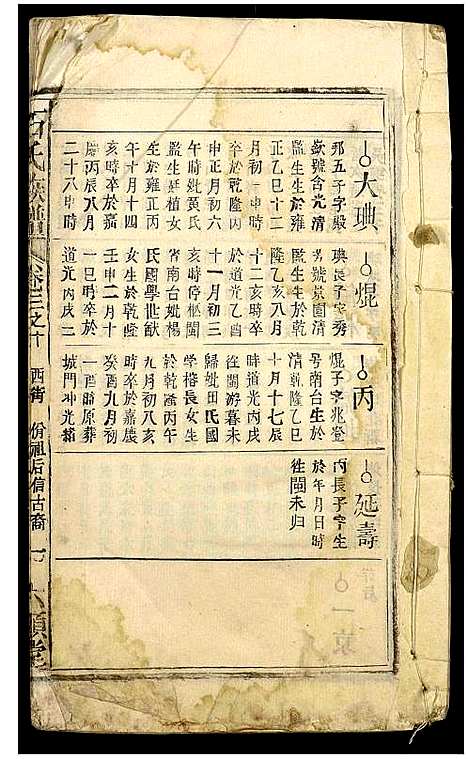 大㻞
邦五子字殿
獻號含光清
監生生於雍
正乙巳十二
月初一申時
卒於乾隆丙
申正月初六
午時妣黃氏
監生延植女
生於雍正丙
午十月十四
亥時卒於嘉
慶丙辰八月
二十八申時
焜
㻞長子字秀
號景園清
監生生於乾
隆乙亥八月
十二亥時卒
於道光乙酉
十一月初三
亥時停柩閩
省南台妣楊
氏國學世猷
女生於乾隆
壬申二月十
一巳時卒於
道光丙戌二
丙
焜子字兆登
号南台生於
清乾隆乙巳
十月十七辰
時道光丙戌
往閩游暮未
歸妣田氏國
學榕長女生
於乾隆丙午
九月初八亥
時卒於嘉慶
癸酉九月初
一酉時原葬
城門冲光裕
延壽
丙長子字生
於年月日時
徃閩未归
石氏族譜
卷三之十
西街
份祖后信古裔
十
六順堂
一京